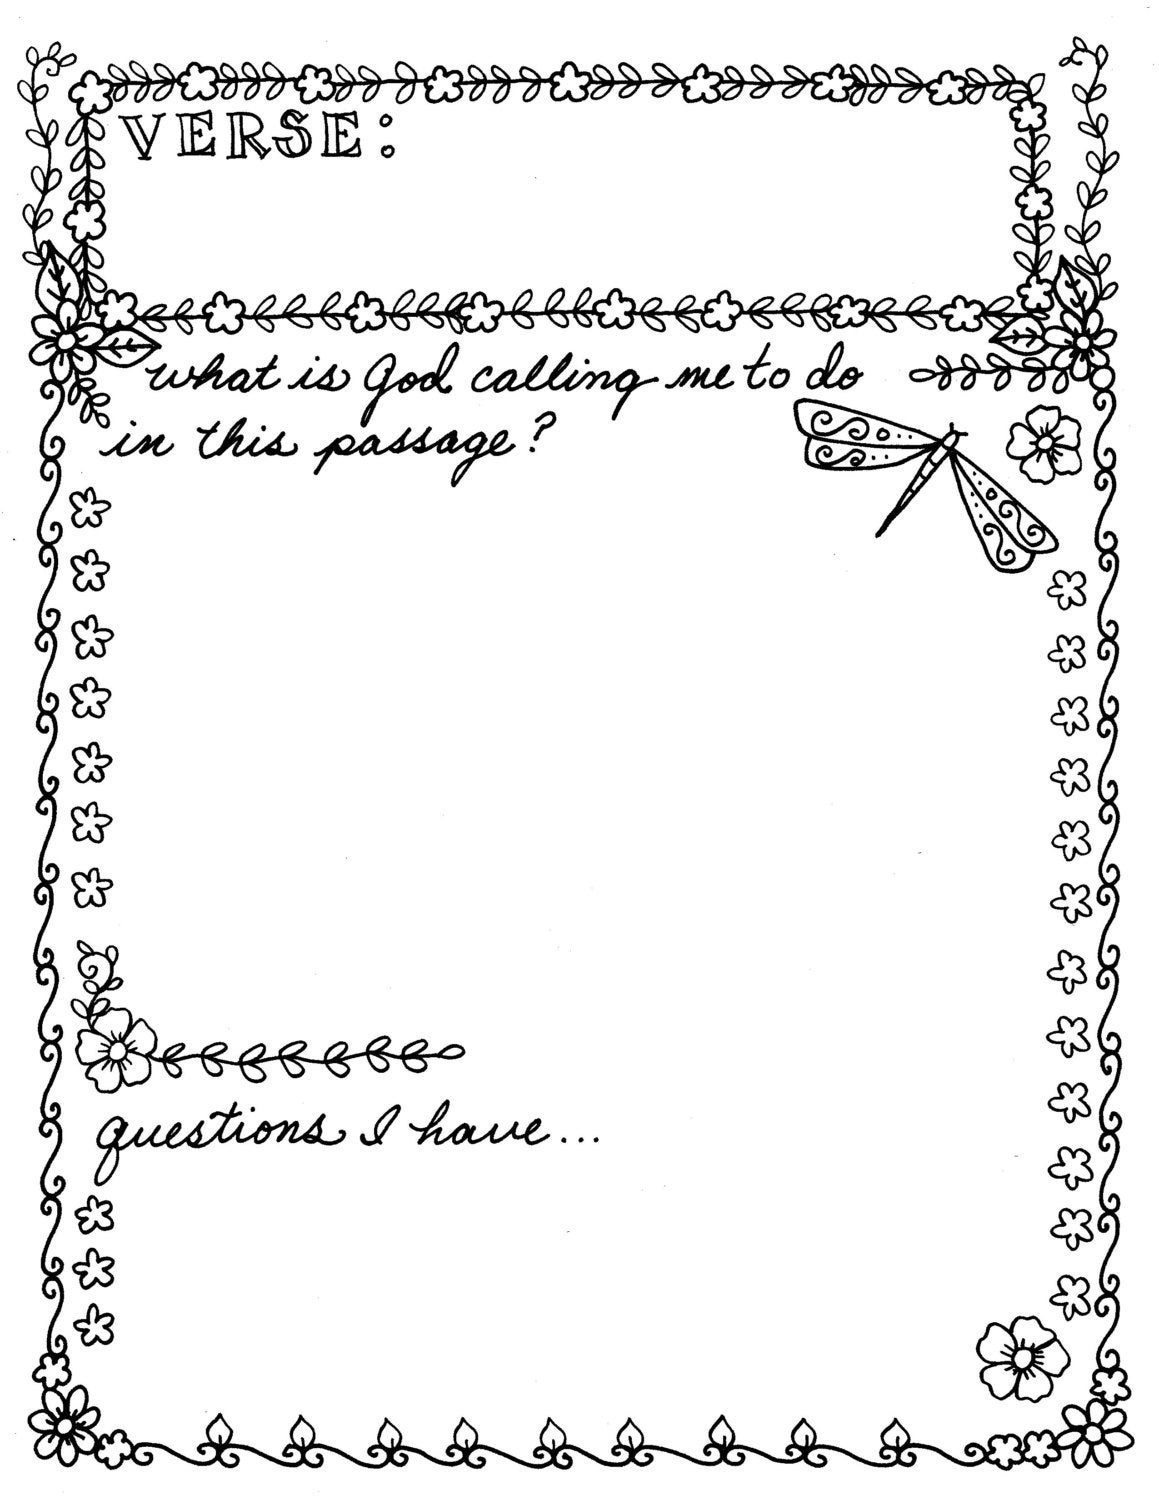 VERSE:
what is God calling me to do
in this passage?
questions I have...